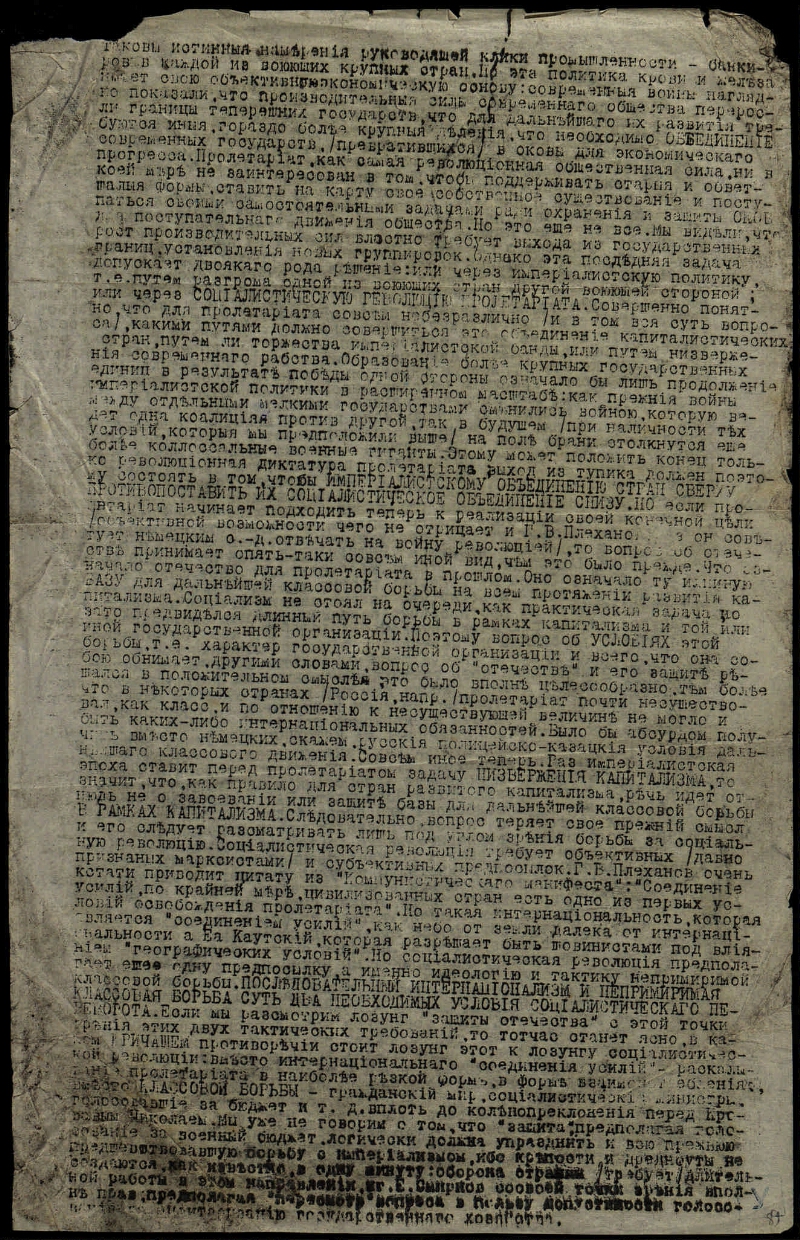 таковы истинныя намѣренія руководящей клики промышленности - банки-
ров в каждой из воюющих крупных стран. Но эта политика крови и желѣза
имѣет свою объективную экономическую основу: современныя войны нагляд-
но показали, что производительныя силы современнаго общества перерос-
ли границы теперешних государств, что для дальнѣйшаго их развитія тре-
буются иныя, гораздо болѣе крупныя дѣленія, что необходимо ОБЪЕДИНЕНІЕ
современных государств, /превратившихся/ в оковы для экономическаго
прогресса. Пролетаріат, как самая революціонная общественная сила, ни в
коей мѣрѣ не заинтересован в том, чтобы поддерживать старыя и обвет-
шалыя формы, ставить на карту свое собственное существованіе и посту-
паться своими самостоятельными задачами ради охраненія и защиты ОКОВ
для поступательнаго движенія общества. Но это еще не все. Мы видѣли, что
рост производительных сил властно требует выхода из государственных
границ, установленія новых группировок. Однако эта послѣдняя задача
допускает двоякаго рода рѣшеніе: или через имперіалистскую политику,
т.е. путем разгрома одной из воюющих стран другой воюющей стороной;
или через СОЦІАЛИСТИЧЕСКУЮ РЕВОЛЮЦІЮ ПРОЛЕТАРІАТА. Совершенно понят-
но, что для пролетаріата совсѣм небезразлично /и в том вся суть вопро-
са/, какими путями должно совершиться это объединеніе капиталистических
стран, путем ли торжества имперіалистской банды, или путем низверже-
нія современнаго рабства. Образованіе болѣе крупных государственных
единиц в результатѣ побѣды одной стороны означало бы лишь продолженіе
имперіалистской политики в расширенном масштабѣ: как прежнія войны
между отдѣльными мелкими государствами смѣнились войною, которую ве-
дет одна коалиція против другой, так в будущем /при наличности тѣх
условій, которыя мы предположили выше/ на полѣ брани столкнутся еще
болѣе коллоссальные военные гиганты. Этому может положить конец толь-
ко революціонная диктатура пролетаріата, выход из тупика должен поэто-
му состоять в том, чтобы ИМПЕРІАЛИСТСКОМУ ОБЪЕДИНЕНІЮ СТРАН СВЕРХУ
ПРОТИВОПОСТАВИТЬ ИХ СОЦІАЛИСТИЧЕСКОЕ ОБЪЕДИНЕНІЕ СНИЗУ. Но если про-
летаріат начинает подходить теперь к реализаціи своей конечной цѣли
/объективной возможности чего не отрицает и Г.В. Плеханов, он совѣ-
тует нѣмецким с.-д. отвѣчать на войну революціей/, то вопрос об отече-
ствѣ принимает опять-таки совсѣм иной вид, чѣм это было прежде. Что оз-
начало отечество для пролетаріата в прошлом. Оно означало ту
БАЗУ для дальнѣйшей классовой борьбы на всем протяженіи развитія ка-
питализма. Соціализм не стоял на очереди, как практическая задача, но
зато предвидѣлся длинный путь борьбы в рамках капитализма и той или
иной государственной организаціи. Поэтому вопрос об УСЛОВІЯХ этой
борьбы, т.е. характер государственной организаціи и всего, что она со-
бою обнимает, другими словами, вопрос об "отечествѣ" и его защитѣ рѣ-
шался в положительном смыслѣ. Это было вполнѣ цѣлесообразно, тѣм болѣе
что в нѣкоторых странах /Россія, напр./ пролетаріат почти несущество-
вал, как класс, и по отношенію к несуществующей величинѣ не могло и
быть каких-либо интернаціональных обязанностей. Было бы абсурдом полу-
чить вмѣсто нѣмецких, скажем, русскія полицейско-казацкія условія даль-
нѣйшаго классового движенія. Совсѣм иное теперь. Раз имперіалистская
эпоха ставит перед пролетаріатом задачу НИЗВЕРЖЕНІЯ КАПИТАЛИЗМА, то
значит, что, как правило для стран развитого капитализма, рѣчь идет от-
нюдь не о завоеваніи или защитѣ базы для дальнѣйшей классовой борьбы
В РАМКАХ КАПИТАЛИЗМА. Слѣдовательно, вопрос теряет свое прежній смысл
и его слѣдует разсматривать лишь под углом зрѣнія борьбы за соціаль-
ную революцію. Соціалистическая революція требует объективных /давно
признаных марксистами/ и субъективных предпосылок. Г.В. Плеханов очень
кстати приводит цитату из "Коммунистическаго манифеста": "Соединеніе
усилій, по крайней мѣрѣ, цивилизованных стран есть одно из первых ус-
ловій освобожденія пролетаріата". Но такая интернаціональность, которая
является "соединеніем усилій", как небо от земли далека от интернаці-
ональности а Ea Каутскій, которая разрѣшает быть шовинистами под влія-
ніем "географических условій". Но соціалистическая революція предпола-
гает еще одну предпосылку, а именно идеологію и тактику непримиримой
классовой борьбы. ПОСЛѢДОВАТЕЛЬНЫЙ ИНТЕРНАЦІОНАЛИЗМ И НЕПРИМИРИМАЯ
КЛАССОВАЯ БОРЬБА СУТЬ ДВА НЕОБХОДИМЫХ УСЛОВІЯ СОЦІАЛИСТИЧЕСКАГО ПЕ-
РЕВОРОТА. Если мы разсмотрим лозунг "защиты отечества" с этой точки
зрѣнія этих двух тактических требованій, то тотчас станет ясно, в ка-
ком КРИЧАЩЕМ противорѣчіи стоит лозунг этот к лозунгу соціалистичес-
кой революціи: вмѣсто интернаціональнаго "соединенія усилій" - раскалы-
ваніе пролетаріата в наиболѣе рѣзкой формѣ, в формѣ
вмѣсто КЛАССОВОЙ БОРЬБЫ - гражданскій мир, соціалистическіе министры,
голосованіе за бюджет и т. д. вплоть до колѣнопреклоненія перед
Николаем. Мы уже не говорим о том, что "защита", предполагая голо-
сованіе за военный бюджет, логически должна упразднить и всю прежнюю
предшествовавшую борьбу с имперіализмом, ибо крѣпости и дредноуты не
создаются, как извѣстно, в одну минуту: оборона страны /требует/ длитель-
ной работы в этом направленіи, и г. Е. Смирнов со своей точки зрѣнія впол-
нѣ прав, предполагая "пересмотр" вопроса в пользу допустимости голосо-
государственнаго хозяйства.